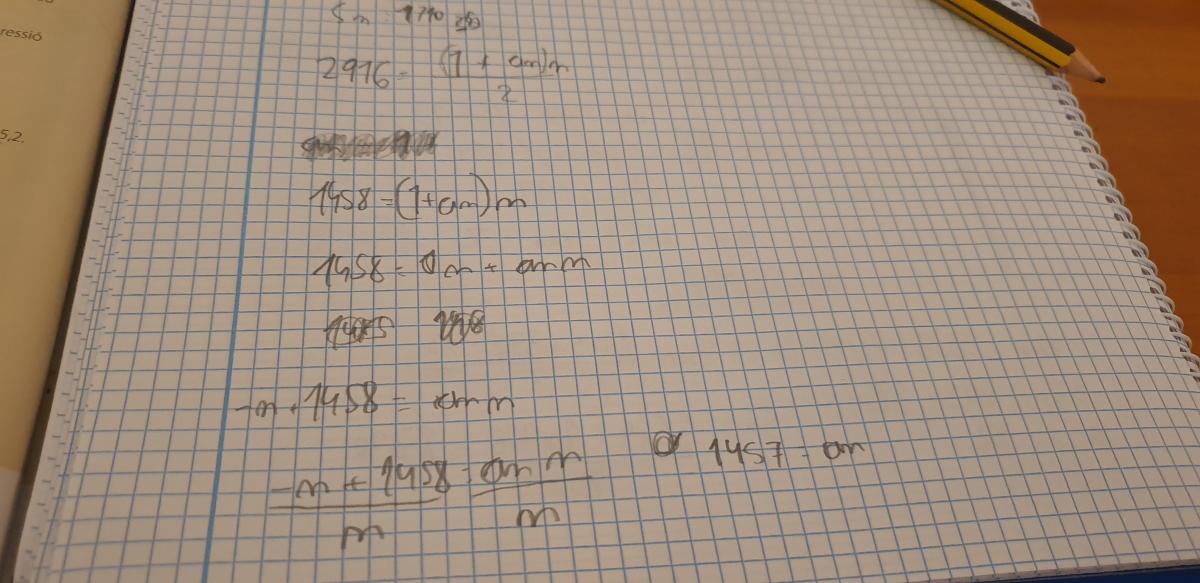 ressió
5,2.
2916 = (1 + an)n
2
1458 = (1+an)n
1458 = 1n + an n
-n + 1458 = an n
-n + 1458 = an n
n n
1457 = an